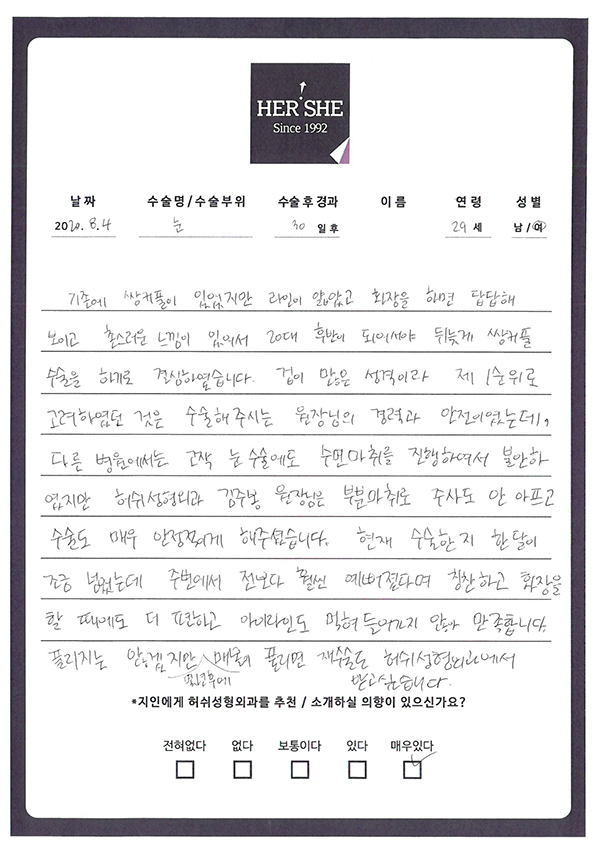 HER SHE
Since 1992
날 짜 수술명 / 수술부위 수술 후 경과 이 름 연 령 성 별
2020. 8. 4 눈 30 일 후 29 세 남 / 여
기존에 쌍커풀이 있었지만 라인이 얇았고 화장을 하면 답답해
보이고 촌스러운 느낌이 있어서 20대 후반이 되어서야 뒤늦게 쌍커플
수술을 하기로 결심하였습니다. 겁이 많은 성격이라 제 1순위로
고려하였던 것은 수술해주시는 원장님의 경력과 안전이었는데,
다른 병원에서는 고작 눈수술에도 수면마취를 진행하여서 불안하
였지만 허쉬성형외과 김주봉 원장님은 부분마취로 주사도 안 아프고
수술도 매우 안정적이게 해주셨습니다. 현재 수술한지 한달이
조금 넘었는데 주변에서 전보다 훨씬 예뻐졌다며 칭찬하고 화장을
할 때에도 더 편하고 아이라인도 먹혀 들어가지 않아 만족합니다.
풀리지는 않겠지만 풀리면 재수술도 허쉬성형외과에서
받고싶습니다.
*지인에게 허쉬성형외과를 추천 / 소개하실 의향이 있으신가요?
전혀없다 없다 보통이다 있다 매우있다